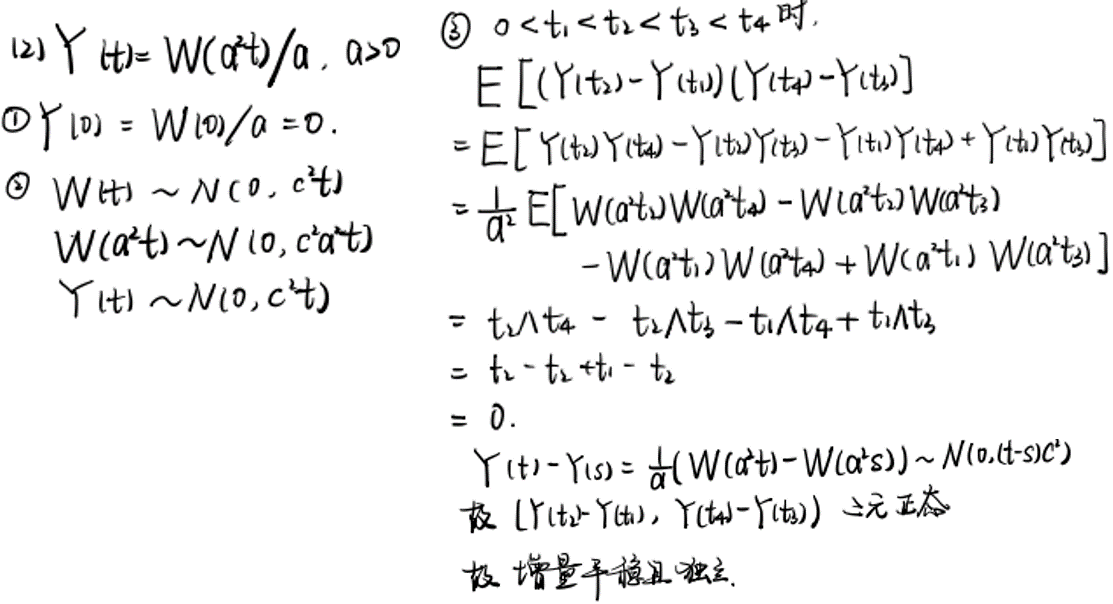 (2) Y(t)= W(a²t)/a, a>0
① Y(0) = W(0)/a =0.
② W(t) ~ N(0, c²t)
W(a²t)~N(0, c²a²t)
Y(t) ~N(0, c²t)
③ 0<t₁<t₂<t₃<t₄时,
E[(Y(t₂)-Y(t₁))(Y(t₄)-Y(t₃)]
=E[Y(t₂)Y(t₄)-Y(t₂)Y(t₃)-Y(t₁)Y(t₄)+Y(t₁)Y(t₃)]
=1/a² E[W(a²t₂)W(a²t₄)-W(a²t₂)W(a²t₃)
-W(a²t₁)W(a²t₄)+W(a²t₁)W(a²t₃)]
= t₂∧t₄ - t₂∧t₃-t₁∧t₄+t₁∧t₃
= t₂-t₂+t₁-t₂
= 0.
Y(t)-Y(s)=1/a(W(a²t)-W(a²s))~N(0,(t-s)c²)
故 (Y(t₂)-Y(t₁), Y(t₄)-Y(t₃)) 二元正态
故 增量平稳且独立.